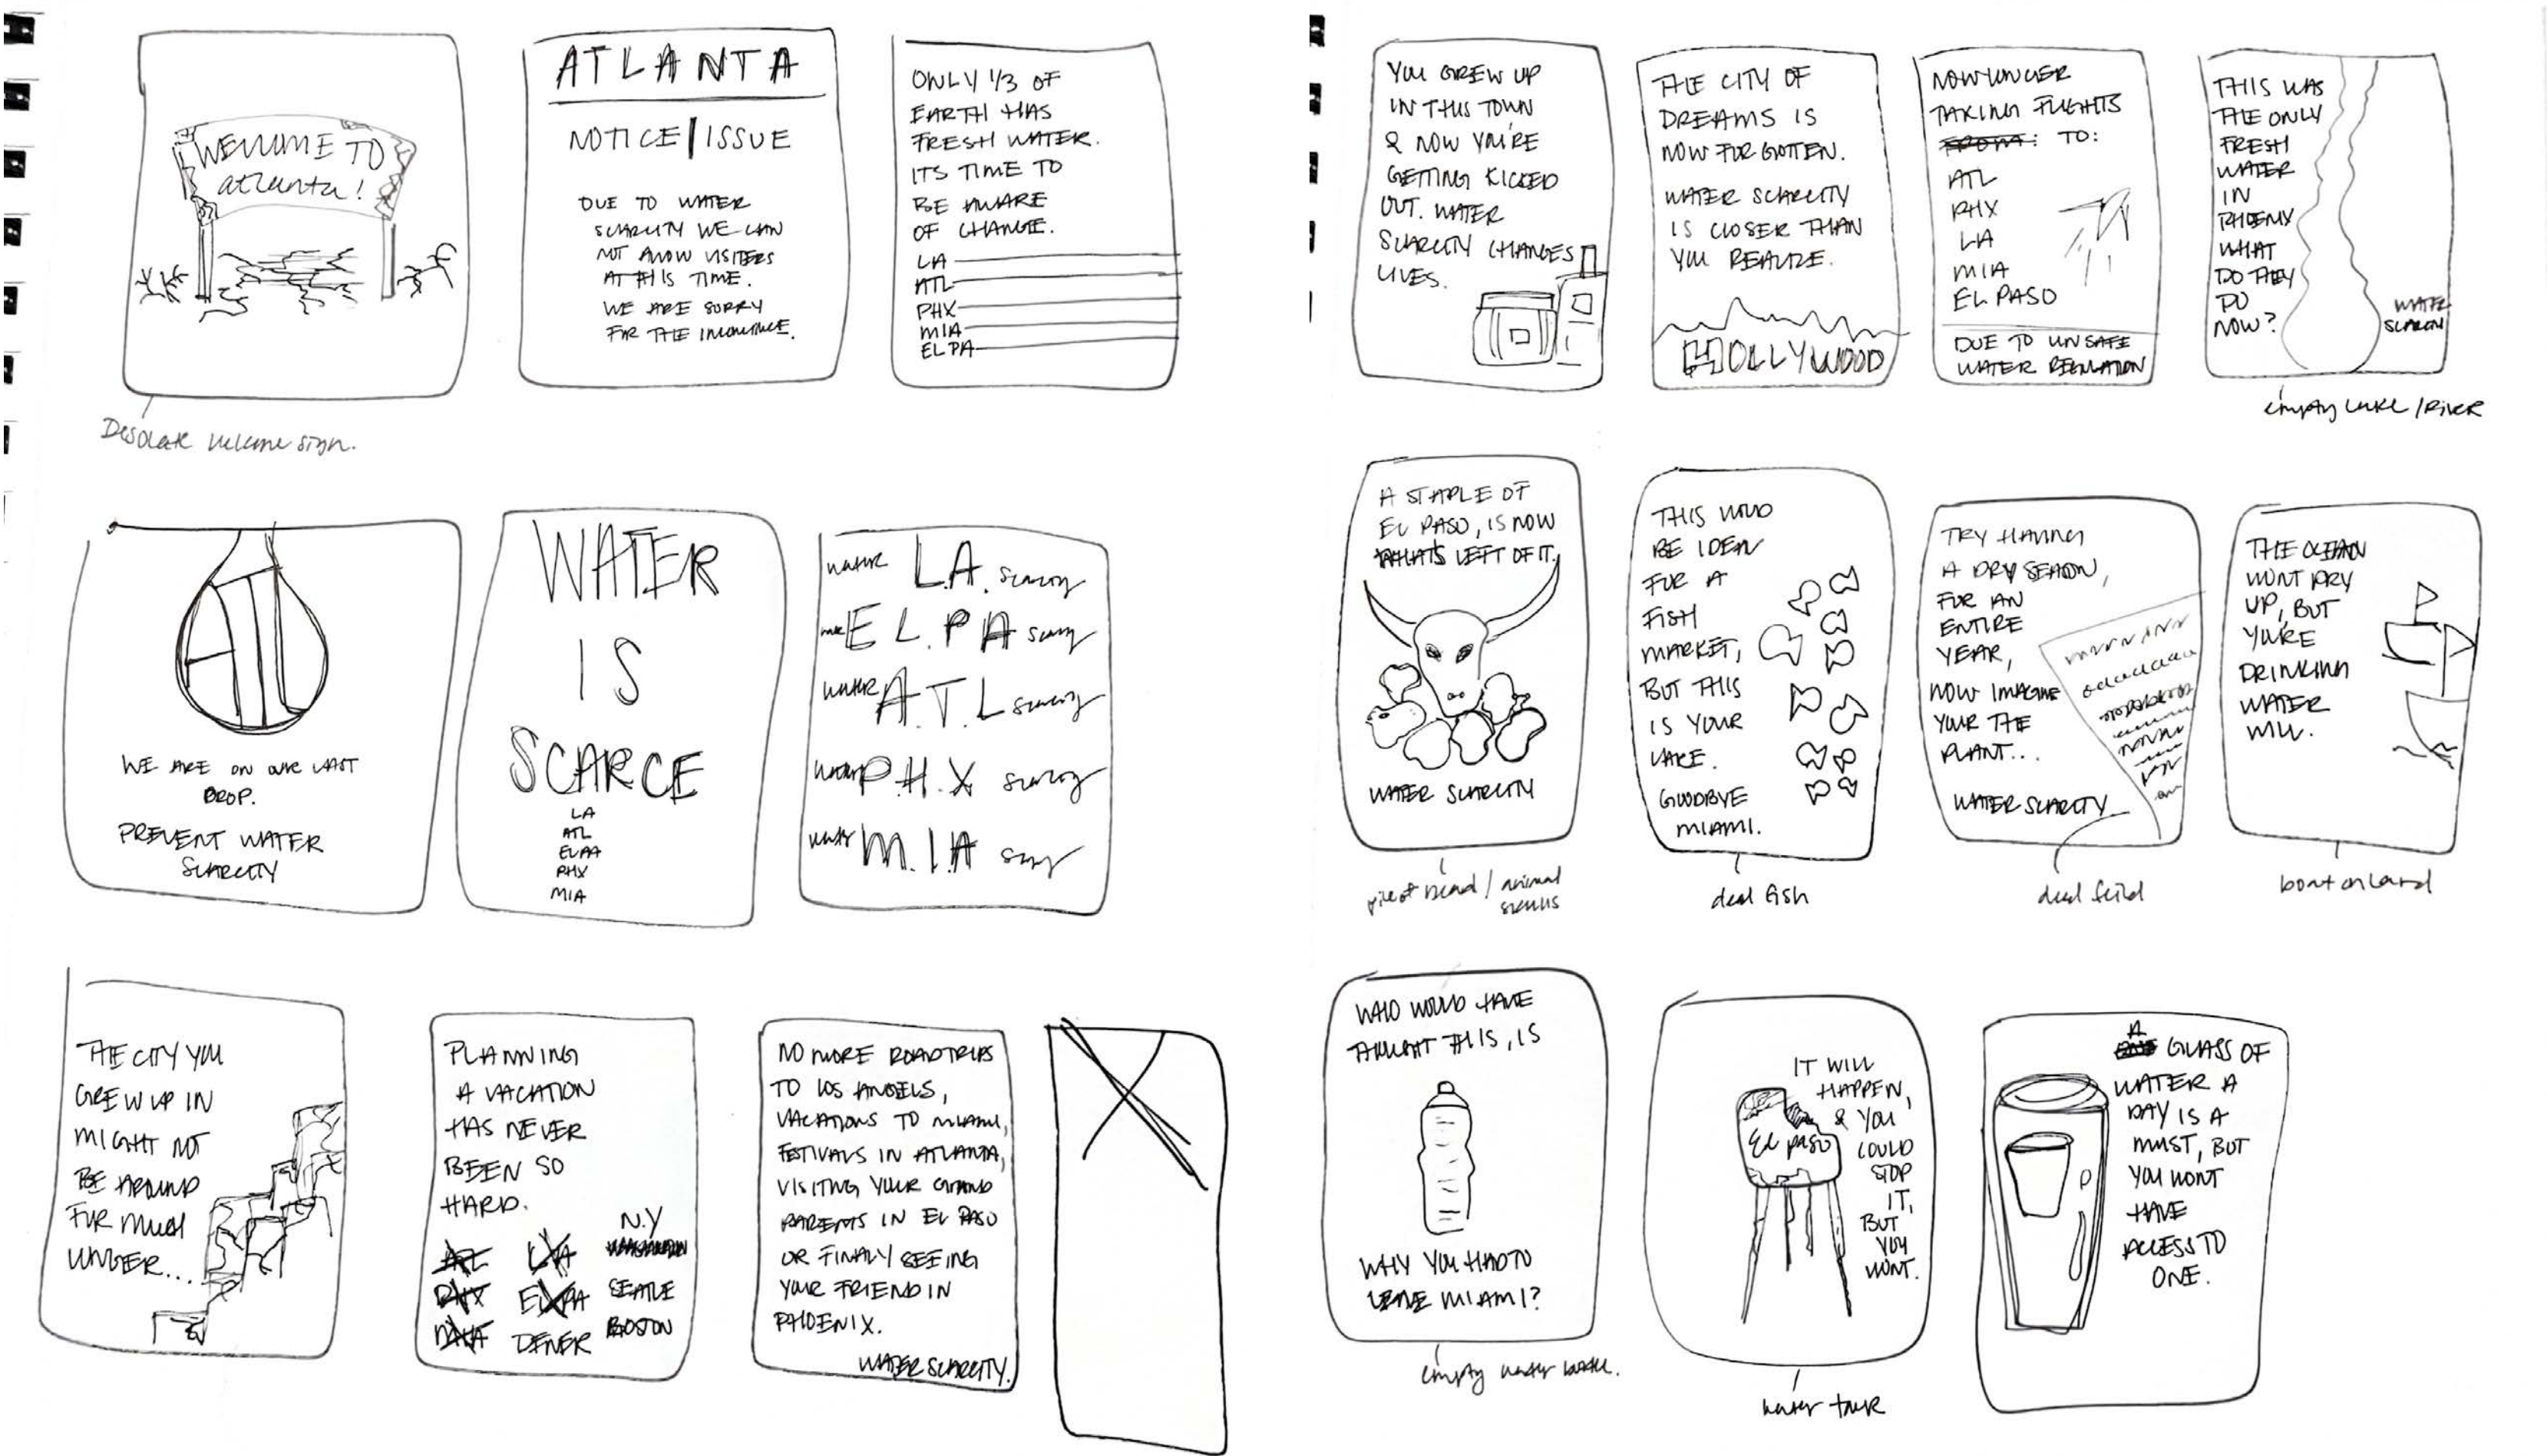 WELCOME TO
atlanta!
Desolate welcome sign.
ATLANTA
NOTICE | ISSUE
DUE TO WATER
SCARCITY WE CAN
NOT ALLOW VISITERS
AT THIS TIME.
WE ARE SORRY
FOR THE
ONLY 1/3 OF
EARTH HAS
FRESH WATER.
ITS TIME TO
BE AWARE
OF CHANGE.
LA
ATL
PHX
MIA
EL PA
WE ARE ON OUR LAST
DROP.
PREVENT WATER
SCARCITY
WATER
IS
SCARCE
LA
ATL
EL PA
PHX
MIA
water L.A. scarcity
EL.PA
water A.T.L scarcity
water P.H.X scarcity
water M.I.A
THE CITY YOU
GREW UP IN
MIGHT NOT
BE AROUND
FOR MUCH
LONGER...
PLANNING
A VACATION
HAS NEVER
BEEN SO
HARD.
LA N.Y
PHX EL PA SEATLE
MIA DENER BOSTON
NO MORE ROADTRIPS
TO LOS ANGELS,
VACATIONS TO MIAMI,
FESTIVALS IN ATLANTA,
VISITING YOUR GRAND
PARENTS IN EL PASO
OR FINALLY SEEING
YOUR FRIEND IN
PHOENIX.
WATER SCARCITY.
YOU GREW UP
IN THIS TOWN
& NOW YOU'RE
GETTING KICKED
OUT. WATER
SCARCITY CHANGES
LIVES.
THE CITY OF
DREAMS IS
NOW FORGOTTEN.
WATER SCARCITY
IS CLOSER THAN
YOU REALIZE.
HOLLYWOOD
NOW LONGER
TAKING FLIGHTS
FROM: TO:
ATL
PHX
LA
MIA
EL PASO
DUE TO UNSAFE
WATER REGULATION
THIS WAS
THE ONLY
FRESH
WATER
IN
PHOENIX
WHAT
DO THEY
DO
NOW?
WATER
SCARCITY
empty lake / River
A STAPLE OF
EL PASO, IS NOW
WHATS LEFT OF IT.
WATER SCARCITY
pile of dead / animal
skulls
THIS WOULD
BE IDEAL
FOR A
FISH
MARKET,
BUT THIS
IS YOUR
LAKE.
GOODBYE
MIAMI.
dead fish
TRY HAVING
A DRY SEASON,
FOR AN
ENTIRE
YEAR,
NOW IMAGINE
YOUR THE
PLANT...
WATER SCARCITY
dead feild
THE OCEAN
WONT DRY
UP, BUT
YOURE
DRINKING
WATER
WILL.
boat on land
WHO WOULD HAVE
THOUGHT THIS, IS
WHY YOU HAD TO
LEAVE MIAMI?
empty water bottle.
IT WILL
HAPPEN,
& YOU
COULD
STOP
IT,
BUT
YOU
WONT.
El paso
water tank
A
GLASS OF
WATER A
DAY IS A
MUST, BUT
YOU WONT
HAVE
ACCESS TO
ONE.